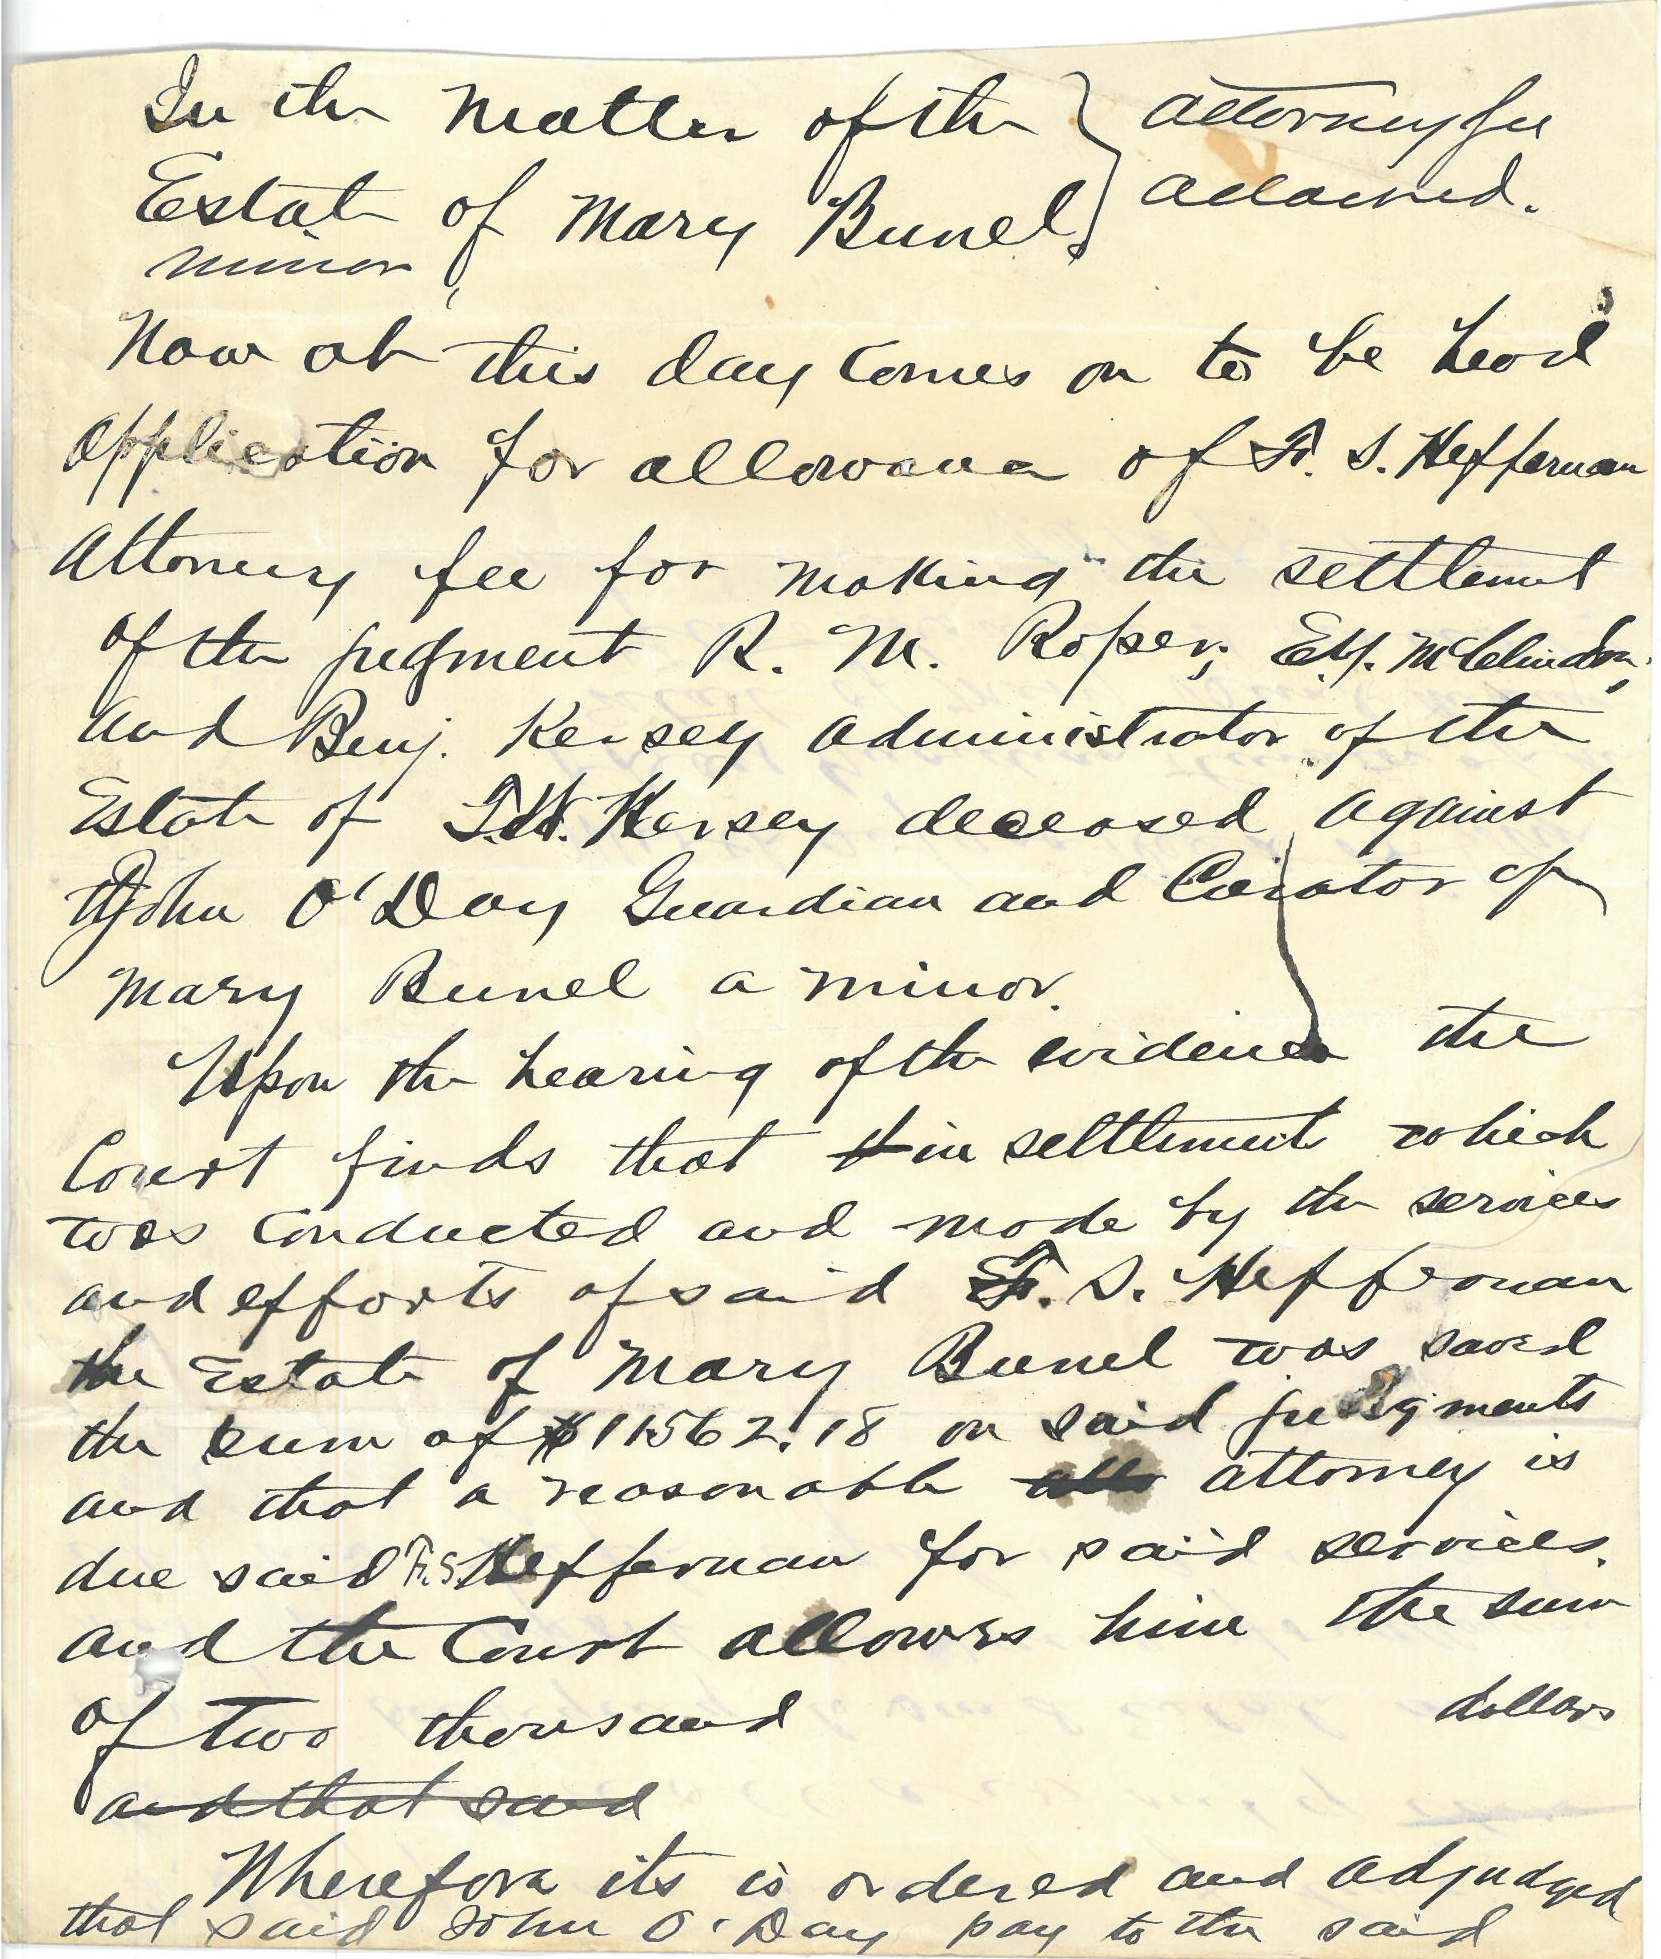 In the Matter of the } attorney fee
Estate of Mary Bunel } allowed.
minor,
Now at this day comes on to be heard
application for allowance of F. S. Heffernan
Attorney fee for making the settlement
of the judgment R. M. Roper, E.Y. McClendon,
and Benj. Kersey administrator of the
Estate of T.W. Kersey deceased against
John O'Day Guardian and Curator of
Mary Bunel a minor.
Upon the hearing of the evidence the
Court finds that in settlement which
was conducted and made by the services
and efforts of said F. S. Heffernan
the Estate of Mary Bunel was saved
the sum of $11562.18 on said judgments
and that a reasonable attorney is
due said F.S. Heffernan for said services.
and the Court allowes him the sum
of two thousand dollars
and that said
Wherefore its is ordered and adjudged
that said John O'Day pay to the said